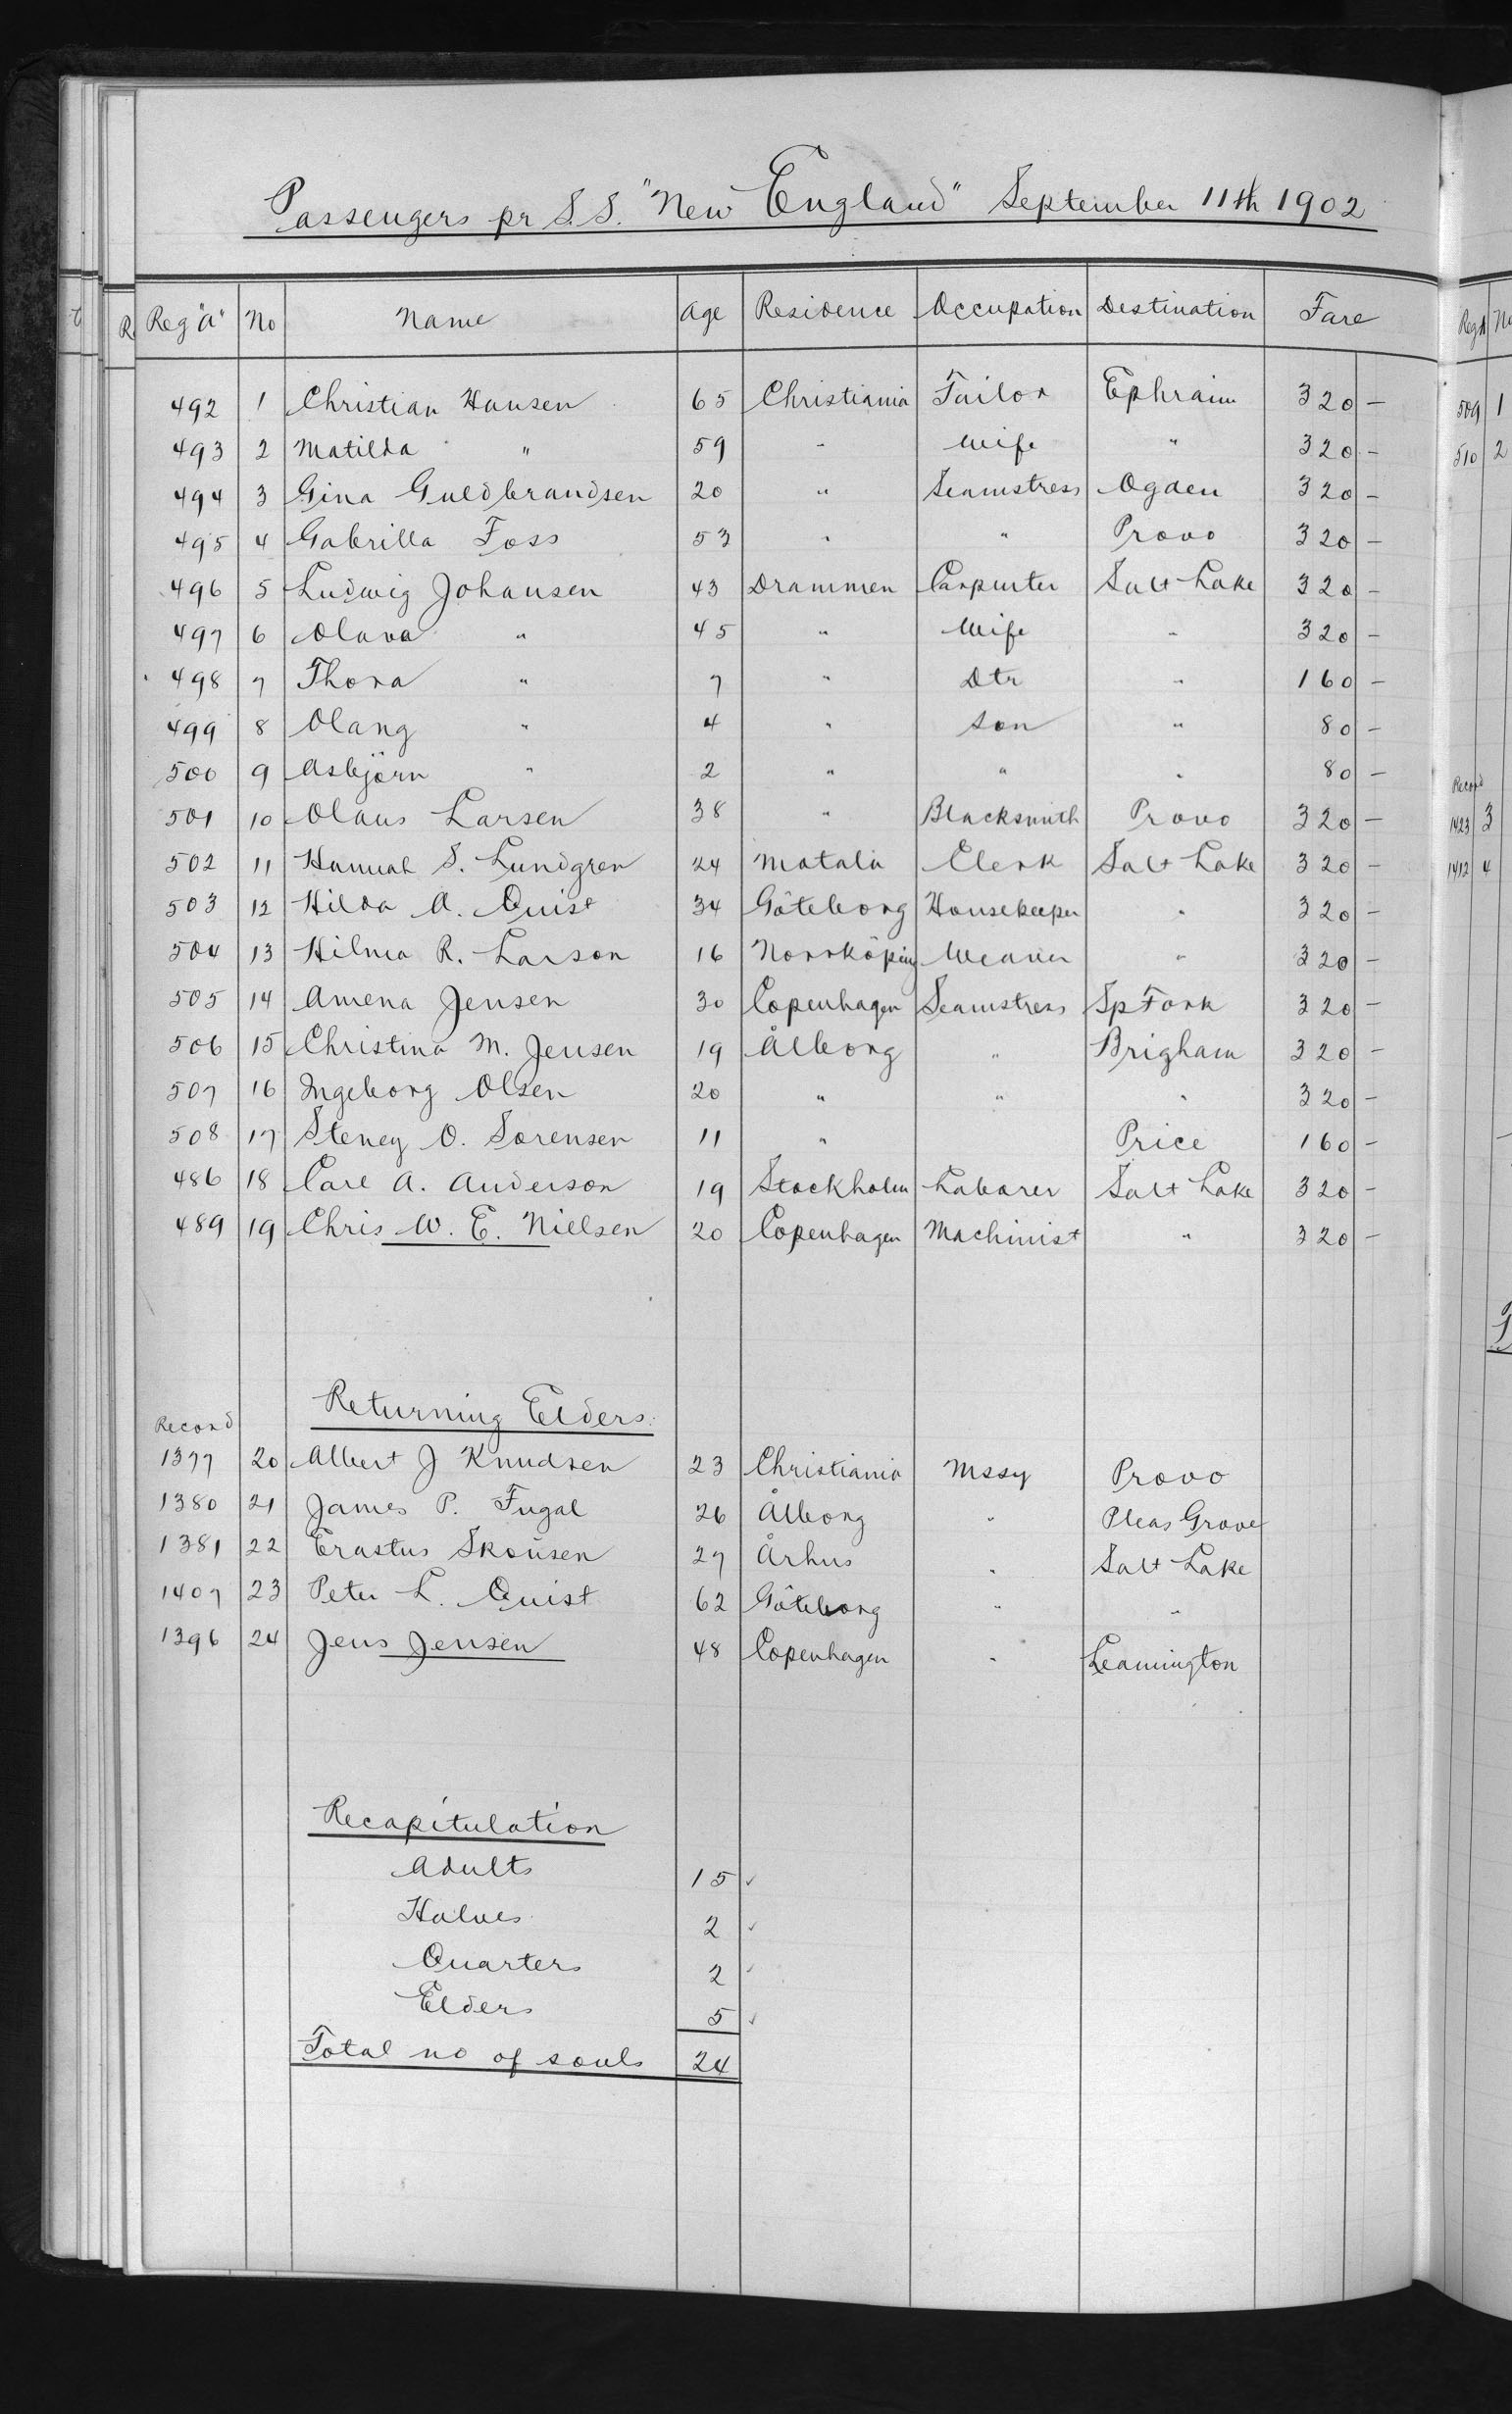 Passengers pr S.S. "New England" September 11th 1902
Reg "A" No Name Age Residence Occupation Destination Fare
492 1 Christian Hansen 65 Christiania Tailor Ephraim 320 -
493 2 Matilda " 59 " Wife " 320 -
494 3 Gina Guldbrandsen 20 " Seamstress Ogden 320 -
495 4 Gabrilla Foss 53 " " Provo 320 -
496 5 Ludwig Johansen 43 Drammen Carpenter Salt Lake 320 -
497 6 Olava " 45 " Wife " 320 -
498 7 Thora " 7 " Dtr " 160 -
499 8 Olang " 4 " Son " 80 -
500 9 Asbjörn " 2 " " " 80 -
501 10 Olaus Larsen 38 " Blacksmith Provo 320 -
502 11 Hannah S. Lundgren 24 Motala Clerk Salt Lake 320 -
503 12 Hilda A. Quist 34 Göteborg Housekeeper " 320 -
504 13 Hilma R. Larson 16 Norrköping Weaver " 320 -
505 14 Amena Jensen 30 Copenhagen Seamstress Sp Fork 320 -
506 15 Christina M. Jensen 19 Ålborg " Brigham 320 -
507 16 Ingeborg Olsen 20 " " " 320 -
508 17 Steney O. Sorensen 11 " Price 160 -
486 18 Carl A. Anderson 19 Stockholm Laborer Salt Lake 320 -
489 19 Chris W. E. Nielsen 20 Copenhagen Machinist " 320 -
Record Returning Elders.
1377 20 Albert J Knudsen 23 Christiania Mssy Provo
1380 21 James P. Fugal 26 Ålborg " Pleas Grove
1381 22 Erastus Skousen 27 Århus " Salt Lake
1407 23 Peter L. Quist 62 Göteborg " "
1396 24 Jens Jensen 48 Copenhagen " Leamington
Recapitulation
Adults 15 ✓
Halves 2 ✓
Quarters 2 ✓
Elders 5 ✓
Total no of souls 24
Reg A No
509 1
510 2
Record
1423 3
1412 4